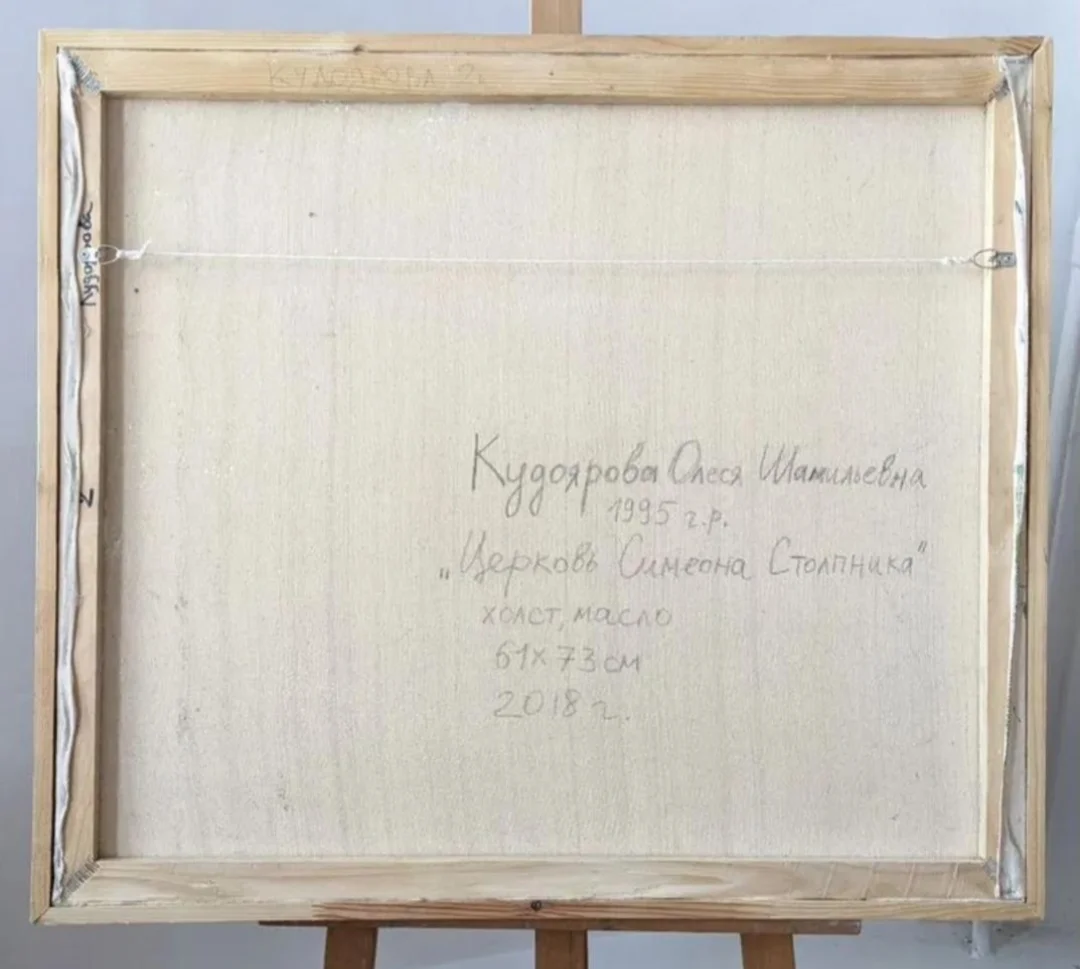 КУДОЯРОВА 2
Кудоярова
2
Кудоярова Олеся Шамильевна
1995 г.р.
„Церковь Симеона Столпника"
холст, масло
61х73 см
2018 г.